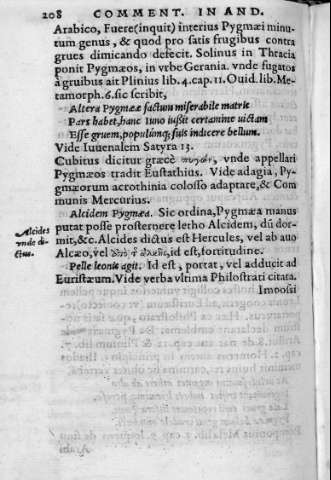 208 COMMENT. IN AND.
Arabico, Fuere(inquit) interius Pygmæi minu-
tum genus, & quod pro satis frugibus contra
grues dimicando defecit. Solinus in Thracia
ponit Pygmæos, in vrbe Gerania. vnde fugatos
à gruibus ait Plinius lib. 4. cap. 11. Ouid. lib. Me-
tamorph. 6. sic scribit,
Altera Pygmææ factum miserabile matris
Pars habet, hanc Iuno iussit certamine uictam
Esse gruem, populísq; suis indicere bellum.
Vide Iuuenalem Satyra 13.
Cubitus dicitur græcè πυγὼν, vnde appellari
Pygmæos tradit Eustathius. Vide adagia, Py-
gmæorum acrothinia colosso adaptare, & Com
munis Mercurius.
Alcidem Pygmæa. Sic ordina, Pygmæa manus
Alcides
vnde di-
ctus.
putat posse prosternere letho Alcidem, dū dor-
mit, &c. Alcides dictus est Hercules, vel ab auo
Alcæo, vel ἀπὸ τ ἀλκῆς, id est, fortitudine.
Pelle leonis agit. Id est, portat, vel adducit ad
Euristæum. Vide verba vltima Philostrati citata.
Impossi